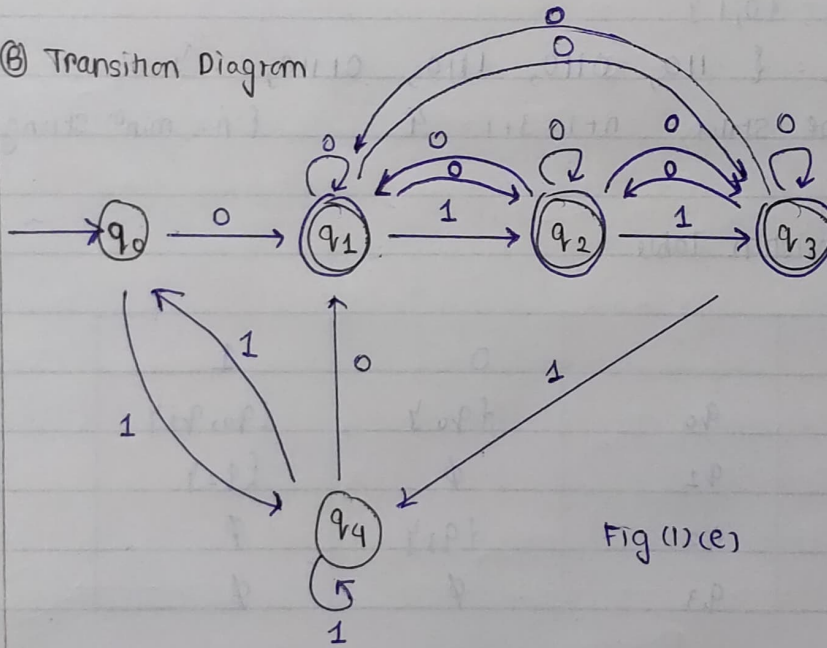 Ⓑ Transition Diagram
0
0
0 0 0 0 0
0 0
q0 0 q1 1 q2 1 q3
1 0 1
1
q4 Fig (1) (e)
1